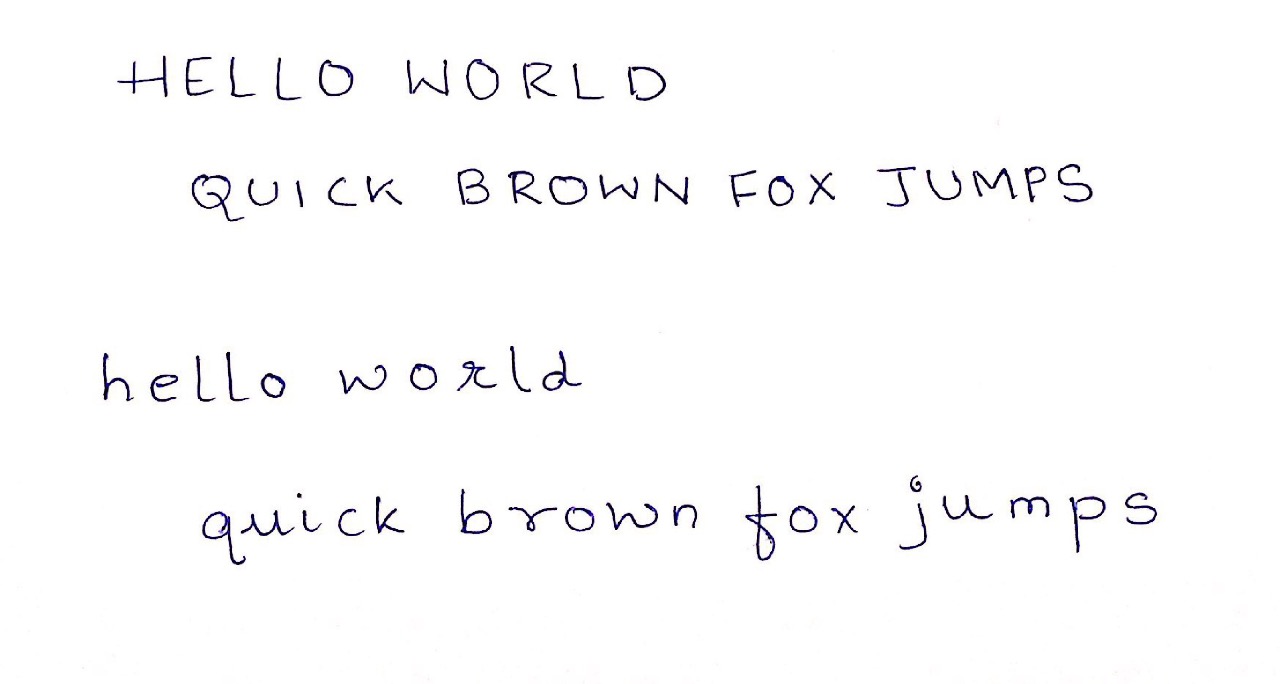 HELLO WORLD
QUICK BROWN FOX JUMPS
hello world
quick brown fox jumps